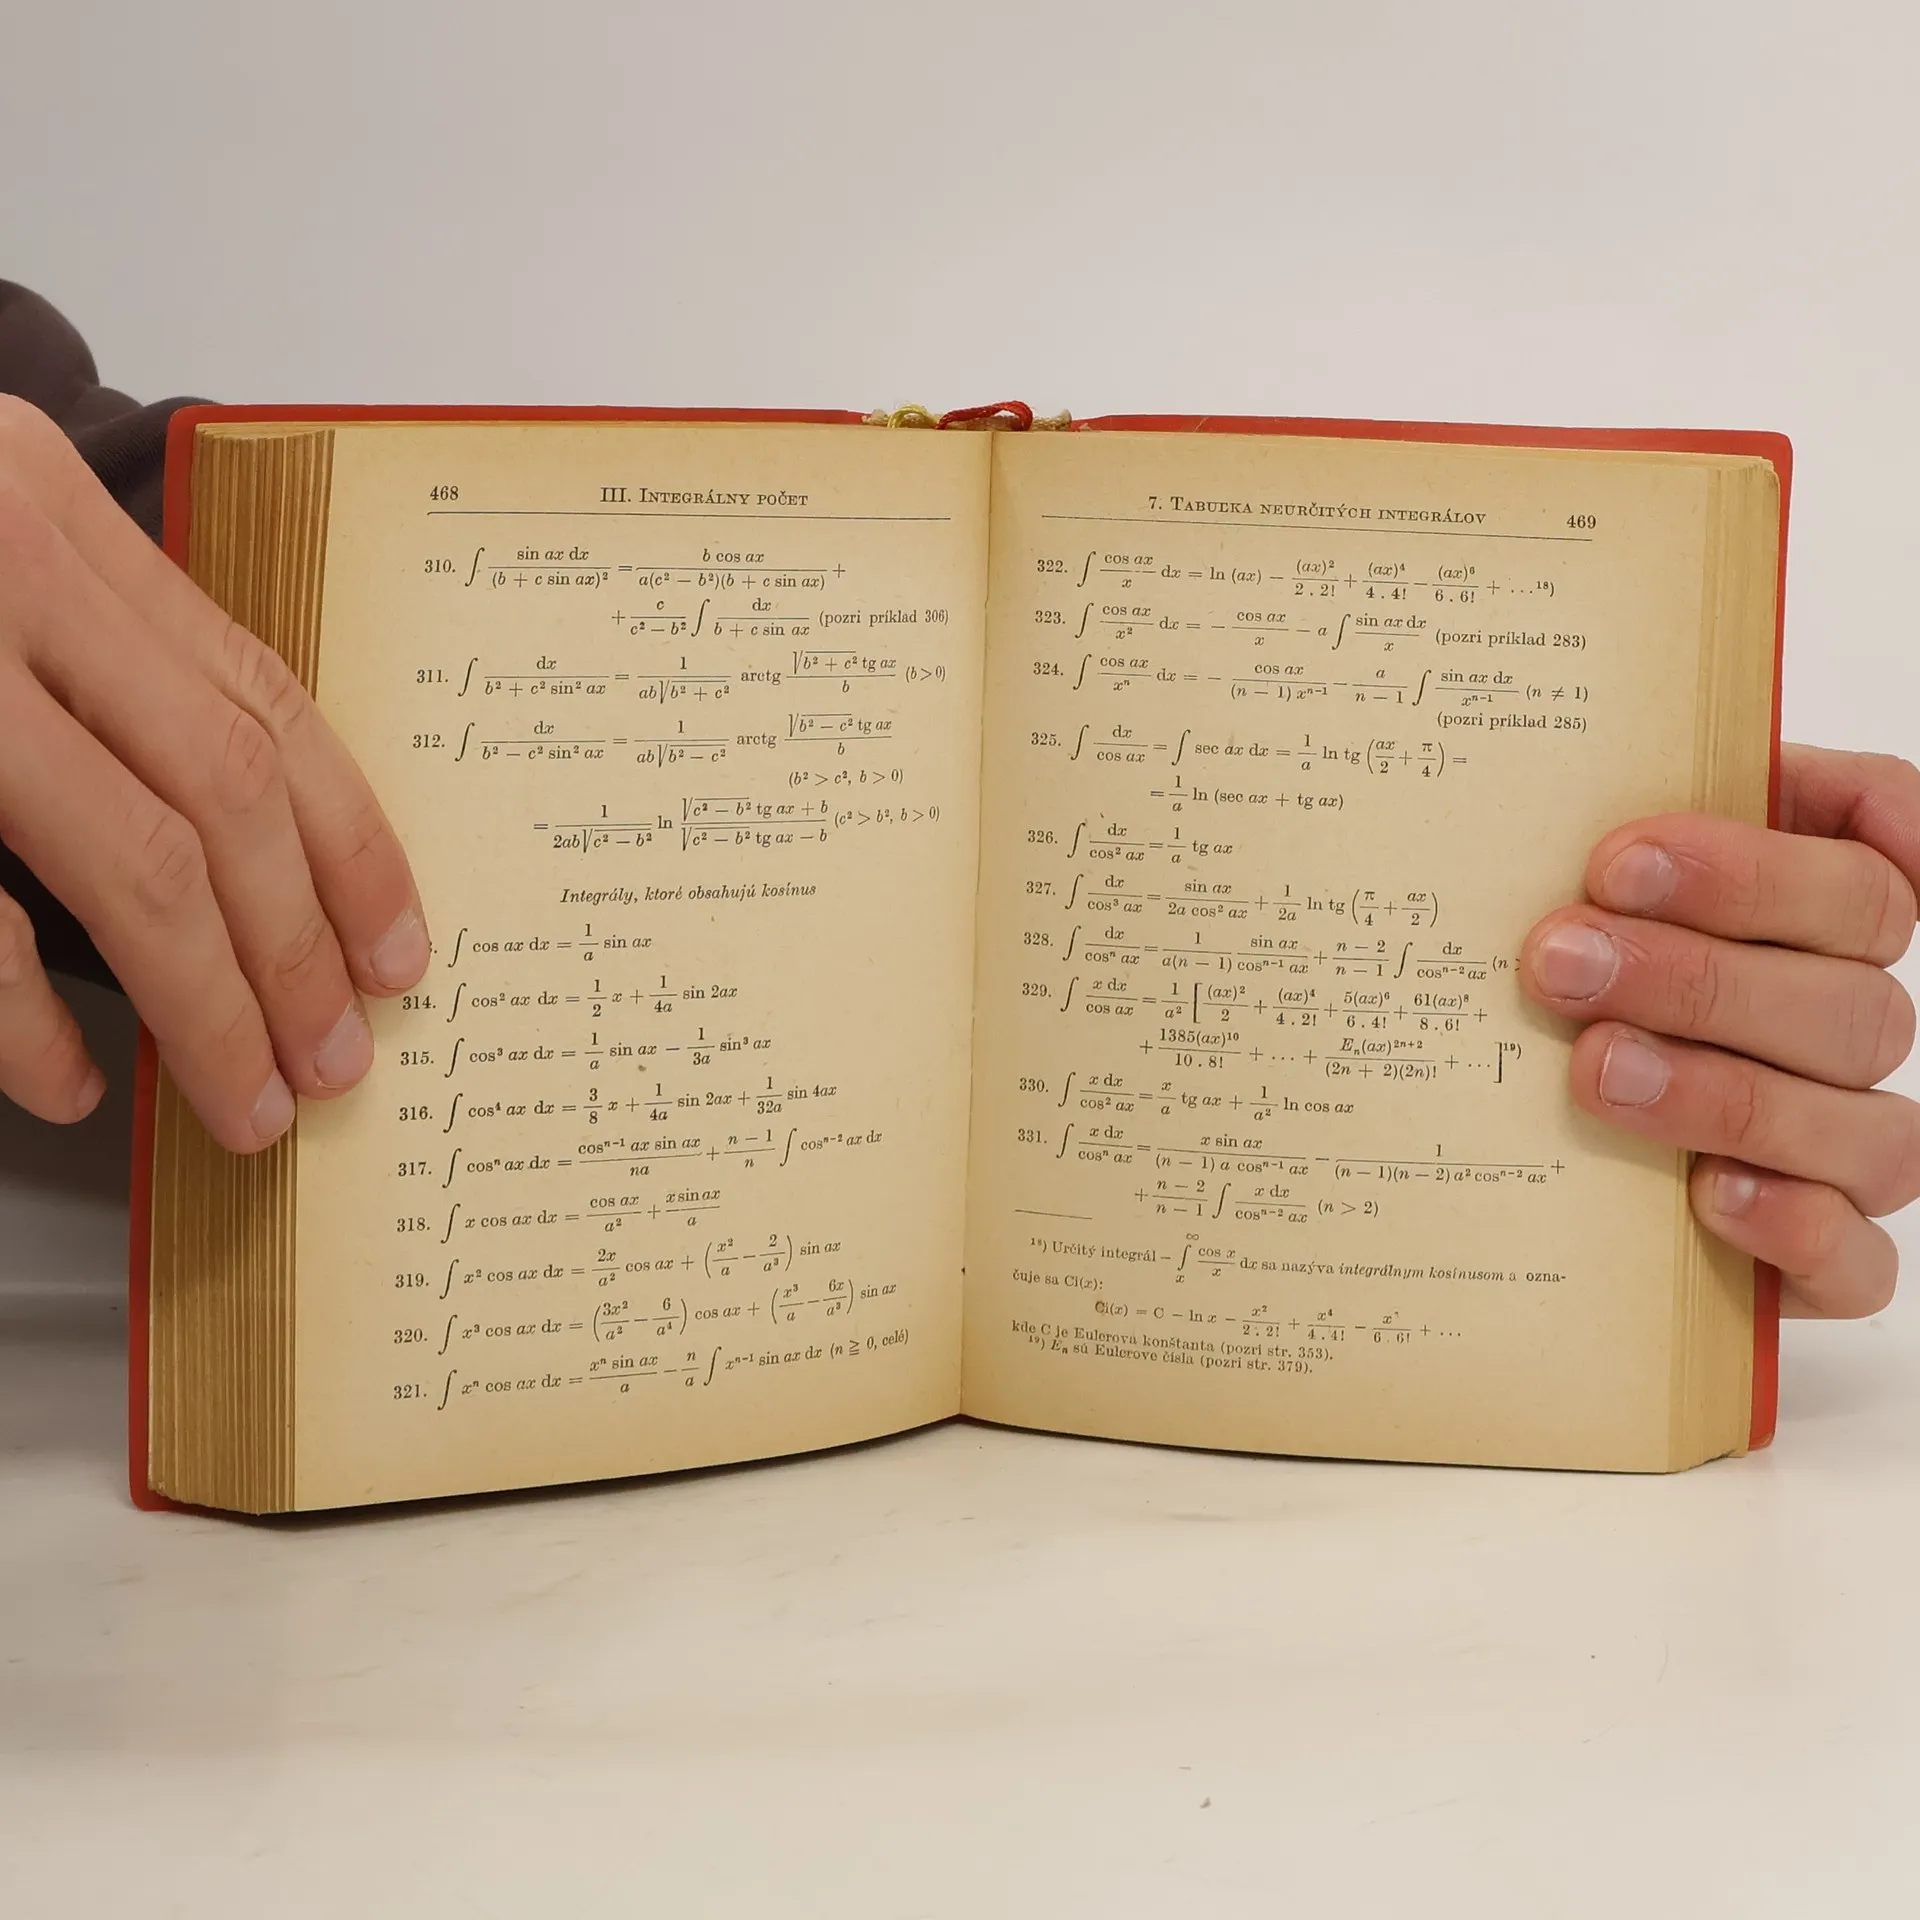 468 III. Integrálny počet
310. ∫ sin ax dx / (b + c sin ax)² = b cos ax / a(c² − b²)(b + c sin ax) +
+ c / (c² − b²) ∫ dx / (b + c sin ax) (pozri príklad 306)
311. ∫ dx / (b² + c² sin² ax) = 1 / (ab√(b² + c²)) arctg √(b² + c²) tg ax / b (b > 0)
312. ∫ dx / (b² − c² sin² ax) = 1 / (ab√(b² − c²)) arctg √(b² − c²) tg ax / b
(b² > c², b > 0)
= 1 / (2ab√(c² − b²)) ln (√(c² − b²) tg ax + b) / (√(c² − b²) tg ax − b) (c² > b², b > 0)
Integrály, ktoré obsahujú kosínus
∫ cos ax dx = 1/a sin ax
314. ∫ cos² ax dx = 1/2 x + 1/4a sin 2ax
315. ∫ cos³ ax dx = 1/a sin ax − 1/3a sin³ ax
316. ∫ cos⁴ ax dx = 3/8 x + 1/4a sin 2ax + 1/32a sin 4ax
317. ∫ cosⁿ ax dx = cosⁿ⁻¹ ax sin ax / na + (n − 1)/n ∫ cosⁿ⁻² ax dx
318. ∫ x cos ax dx = cos ax / a² + x sin ax / a
319. ∫ x² cos ax dx = 2x/a² cos ax + (x²/a − 2/a³) sin ax
320. ∫ x³ cos ax dx = (3x²/a² − 6/a⁴) cos ax + (x³/a − 6x/a³) sin ax
321. ∫ xⁿ cos ax dx = xⁿ sin ax / a − n/a ∫ xⁿ⁻¹ sin ax dx (n ≧ 0, celé)
7. Tabuľka neurčitých integrálov 469
322. ∫ cos ax / x dx = ln (ax) − (ax)²/2 . 2! + (ax)⁴/4 . 4! − (ax)⁶/6 . 6! + ...¹⁸)
323. ∫ cos ax / x² dx = − cos ax / x − a ∫ sin ax dx / x (pozri príklad 283)
324. ∫ cos ax / xⁿ dx = − cos ax / (n − 1) xⁿ⁻¹ − a / (n − 1) ∫ sin ax dx / xⁿ⁻¹ (n ≠ 1)
(pozri príklad 285)
325. ∫ dx / cos ax = ∫ sec ax dx = 1/a ln tg (ax/2 + π/4) =
= 1/a ln (sec ax + tg ax)
326. ∫ dx / cos² ax = 1/a tg ax
327. ∫ dx / cos³ ax = sin ax / 2a cos² ax + 1/2a ln tg (π/4 + ax/2)
328. ∫ dx / cosⁿ ax = 1 / a(n − 1) sin ax / cosⁿ⁻¹ ax + (n − 2)/(n − 1) ∫ dx / cosⁿ⁻² ax (n >
329. ∫ x dx / cos ax = 1/a² [(ax)²/2 + (ax)⁴/4 . 2! + 5(ax)⁶/6 . 4! + 61(ax)⁸/8 . 6! +
+ 1385(ax)¹⁰/10 . 8! + ... + Eₙ(ax)²ⁿ⁺²/(2n + 2)(2n)! + ...]¹⁹)
330. ∫ x dx / cos² ax = x/a tg ax + 1/a² ln cos ax
331. ∫ x dx / cosⁿ ax = x sin ax / (n − 1) a cosⁿ⁻¹ ax − 1 / (n − 1)(n − 2) a² cosⁿ⁻² ax +
+ (n − 2)/(n − 1) ∫ x dx / cosⁿ⁻² ax (n > 2)
¹⁸) Určitý integrál − ∫ₓ^∞ cos x / x dx sa nazýva integrálnym kosínusom a ozna-
čuje sa Ci(x):
Ci(x) = C − ln x − x²/2 . 2! + x⁴/4 . 4! − /6 . 6! + ...
kde C je Eulerova konštanta (pozri str. 353).
¹⁹) Eₙ sú Eulerove čísla (pozri str. 379).